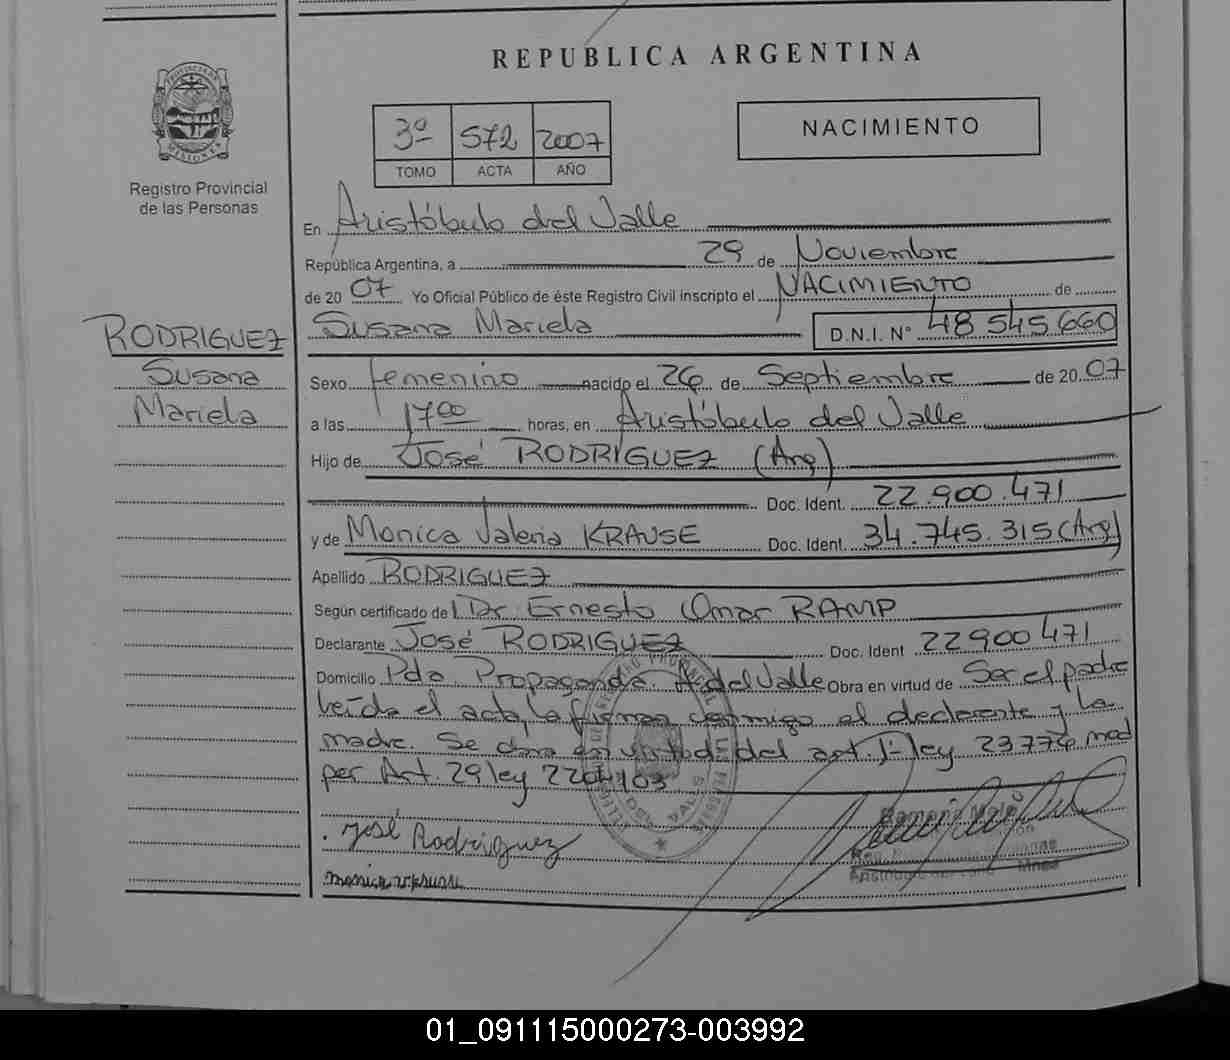 REPUBLICA ARGENTINA
PROVINCIA DE
MISIONES
Registro Provincial
de las Personas
3º 572 2007
TOMO ACTA AÑO
NACIMIENTO
En Aristóbulo del Valle
República Argentina, a 29 de Noviembre
de 20 07 Yo Oficial Público de éste Registro Civil inscripto el NACIMIENTO de
Susana Mariela D.N.I. Nº 48 545 660
RODRIGUEZ
Susana
Mariela
Sexo femenino nacido el 26 de Septiembre de 20 07
a las 17 00 horas, en Aristóbulo del Valle
Hijo de José RODRIGUEZ (Arg)
Doc. Ident. 22.900.471
y de Monica Valeria KRAUSE Doc. Ident. 34.745.315 (Arg)
Apellido RODRIGUEZ
Según certificado de Dr. Ernesto Omar RAMP
Declarante José RODRIGUEZ Doc. Ident 22900471
Domicilio Pda. Propaganda. A del Valle Obra en virtud de Ser el padre
leída el acta, la firman conmigo el declarante y la
madre. Se obra en virtud del art. 1- ley 23776 mod
per Art. 29 ley 22
José Rodriguez
01_091115000273-003992